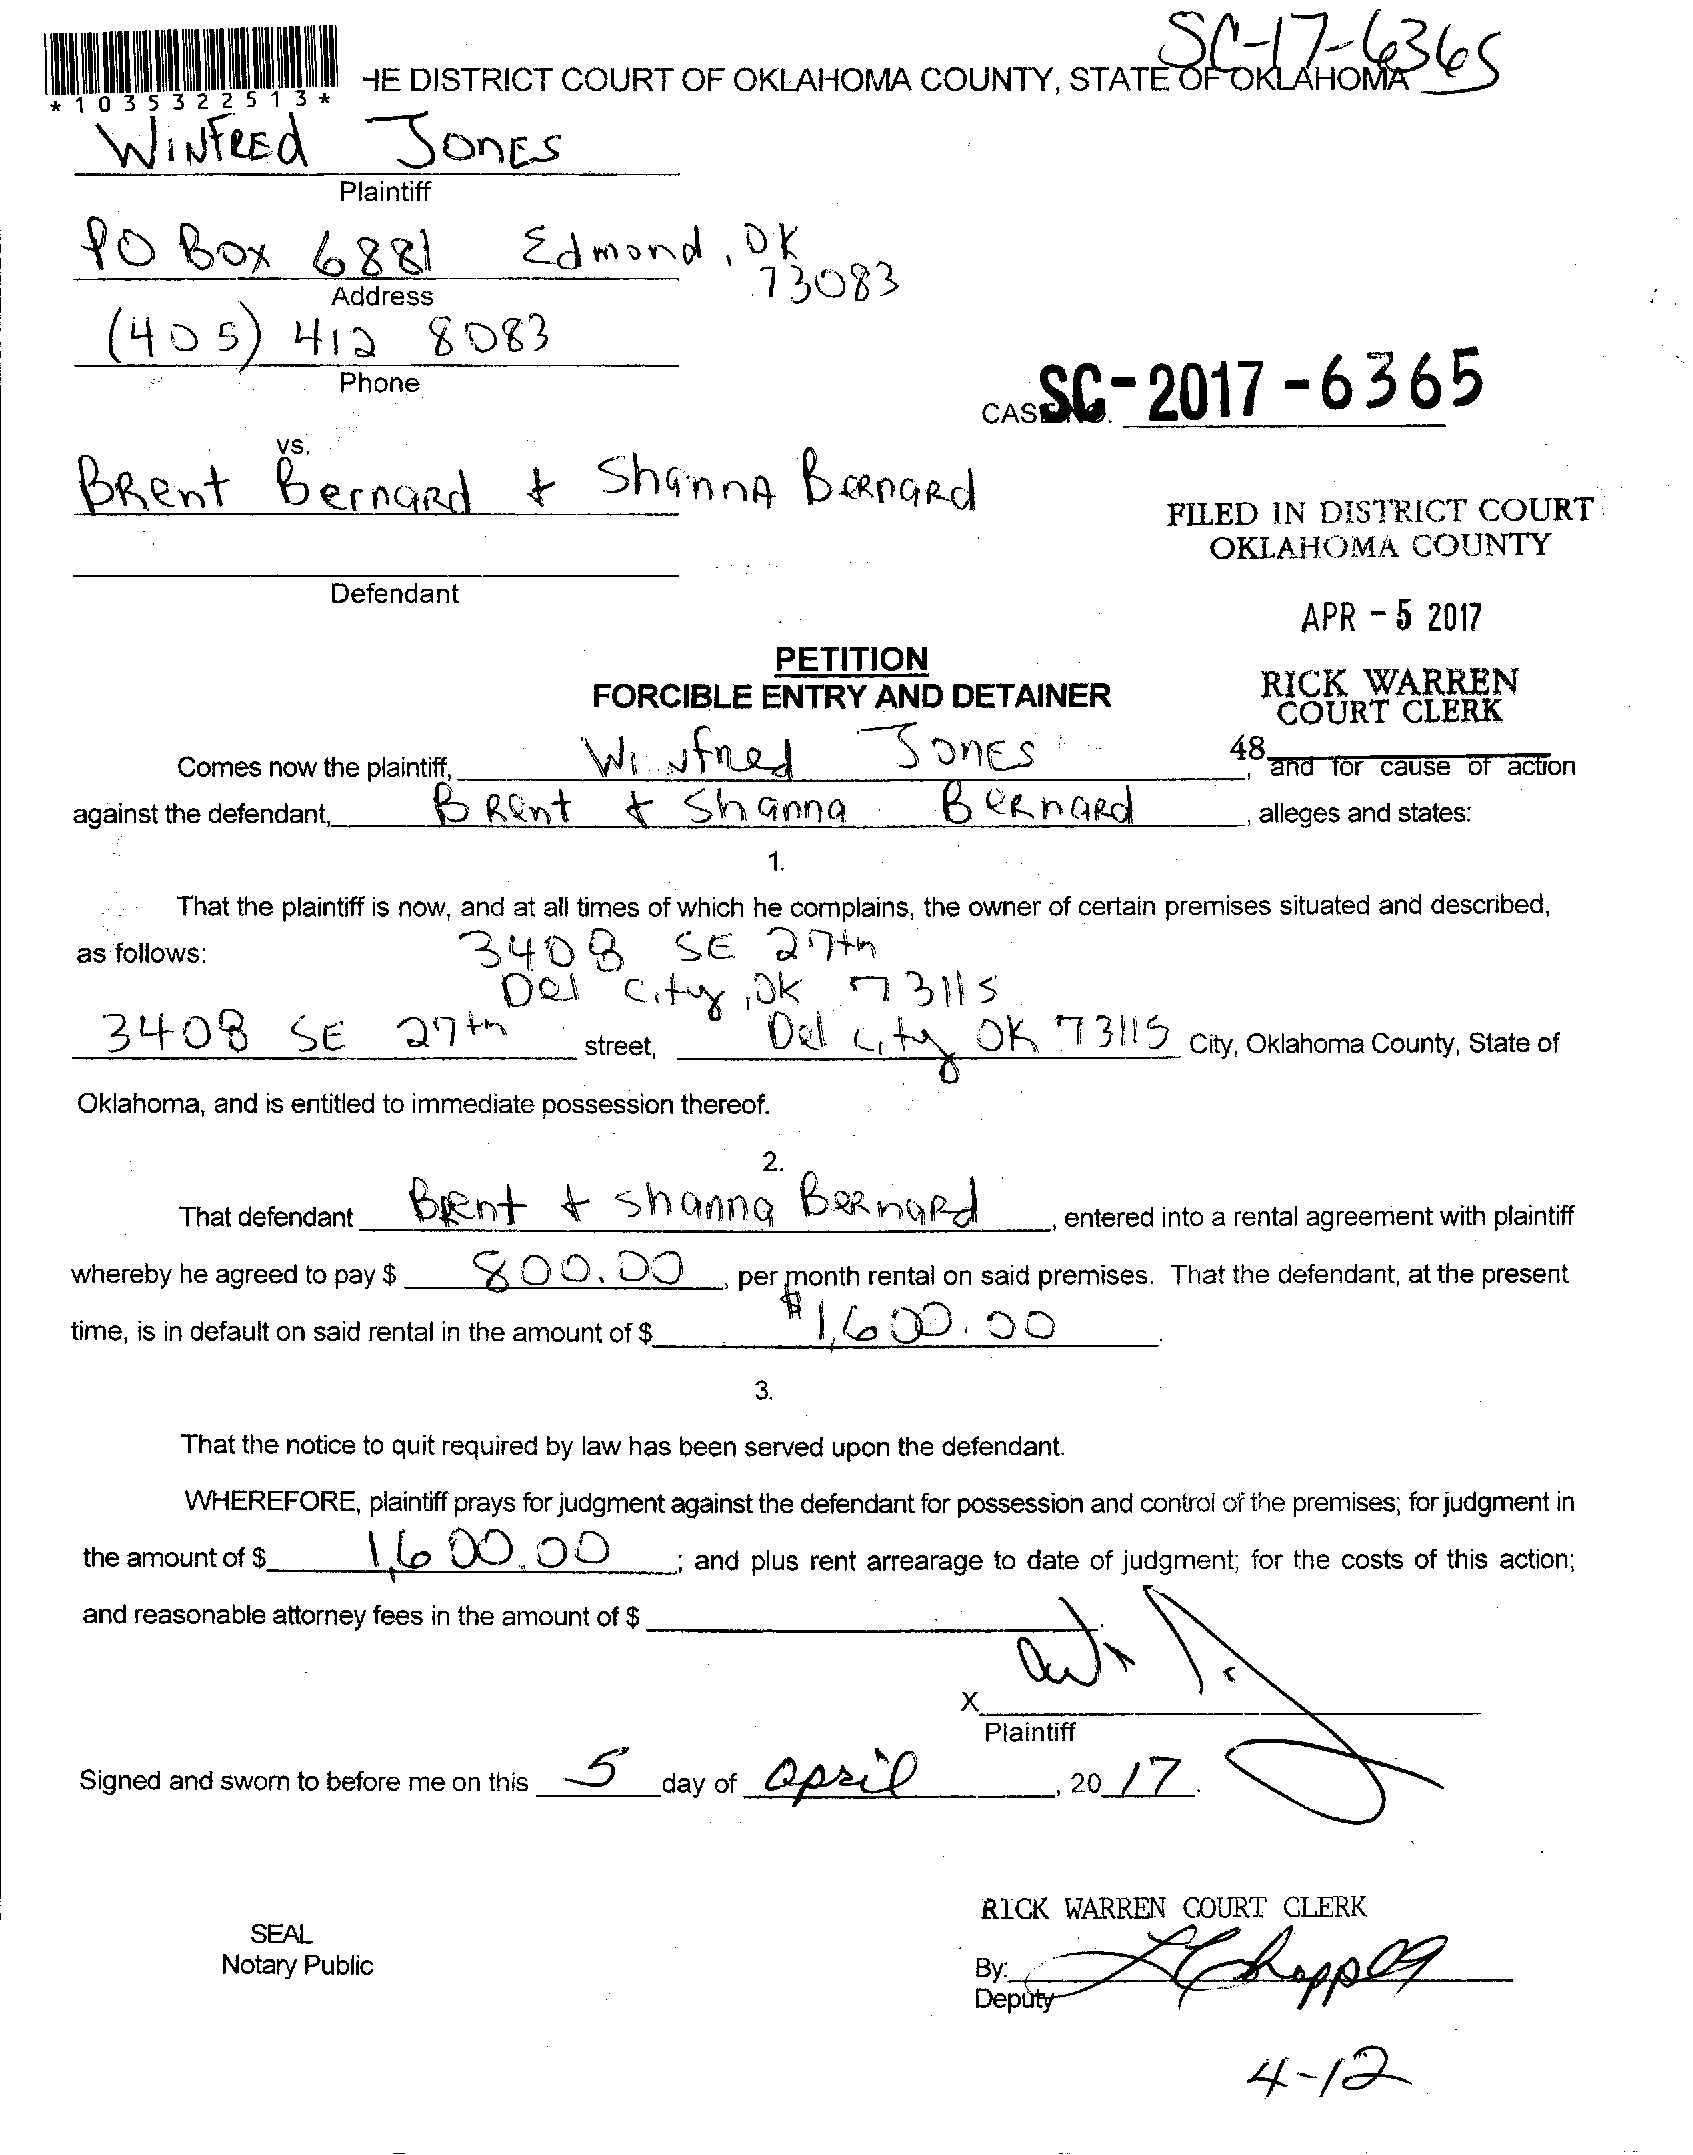 SC-17-6365
*1035322513*
HE DISTRICT COURT OF OKLAHOMA COUNTY, STATE OF OKLAHOMA
WINFRED JONES
Plaintiff
PO Box 6881 Edmond, OK
73083
Address
(405) 412 8083
Phone
CAS SC-2017-6365
vs.
BRent BernaRd + ShannA BeRnaRd
FILED IN DISTRICT COURT
OKLAHOMA COUNTY
Defendant
APR - 5 2017
PETITION
FORCIBLE ENTRY AND DETAINER
RICK WARREN
COURT CLERK
48
Comes now the plaintiff, Winfred Jones, and for cause of action
against the defendant, BRent + Shanna BeRnaRd, alleges and states:
1.
That the plaintiff is now, and at all times of which he complains, the owner of certain premises situated and described,
as follows: 3408 SE 27th
Del City, OK 73115
3408 SE 27th street, Del City OK 73115 City, Oklahoma County, State of
Oklahoma, and is entitled to immediate possession thereof.
2.
That defendant BRent + Shanna BeRnaRd, entered into a rental agreement with plaintiff
whereby he agreed to pay $ 800.00, per month rental on said premises. That the defendant, at the present
time, is in default on said rental in the amount of $ $1,600.00.
3.
That the notice to quit required by law has been served upon the defendant.
WHEREFORE, plaintiff prays for judgment against the defendant for possession and control of the premises; for judgment in
the amount of $ 1,600.00; and plus rent arrearage to date of judgment; for the costs of this action;
and reasonable attorney fees in the amount of $
X
Plaintiff
Signed and sworn to before me on this 5 day of April, 20 17.
RICK WARREN COURT CLERK
SEAL
Notary Public
By:
Deputy
4-12